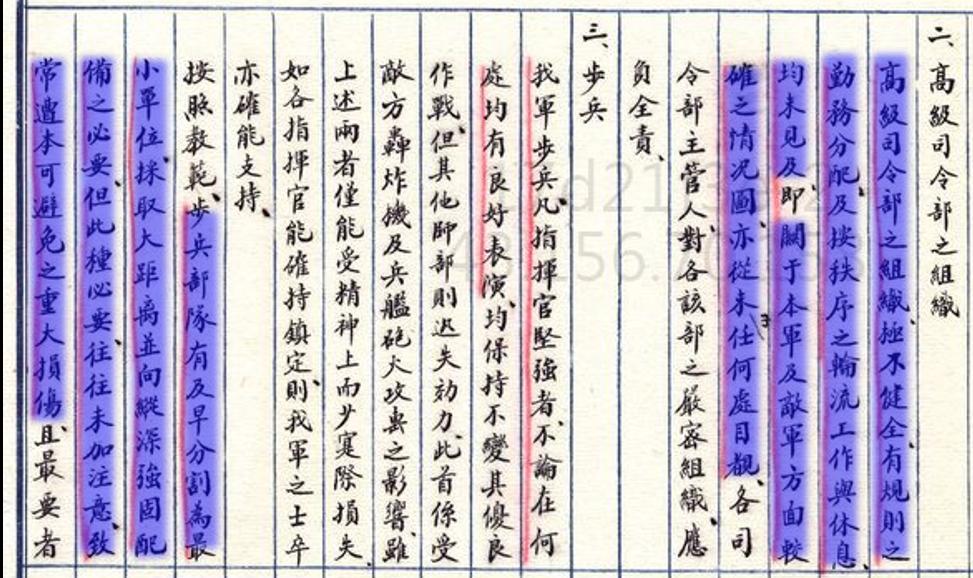 二、高級司令部之組織
高級司令部之組織極不健全、有規則之
勤務分配、及按秩序之輪流工作與休息、
均未見及、即關于本軍及敵軍方面較
確之情況圖、亦從未任何處目觀、各司
令部主管人、對各該部之嚴密組織、應
負全責、
三、步兵
我軍步兵、凡指揮官堅強者、不論在何
處均有良好表演、均保持不變其優良
作戰、但其他師部則迅失効力、此首係受
敵方轟炸機及兵艦砲火攻擊之影響、雖
上述兩者僅能受精神上而少寔際損失、
如各指揮官能確持鎮定、則我軍之士卒
亦確能支持、
按照教範、步兵部隊有及早分割為最
小單位、採取大距离並向縱深強固配
備之必要、但此種必要、往往未加注意、致
常遭本可避免之重大損傷、且最要者